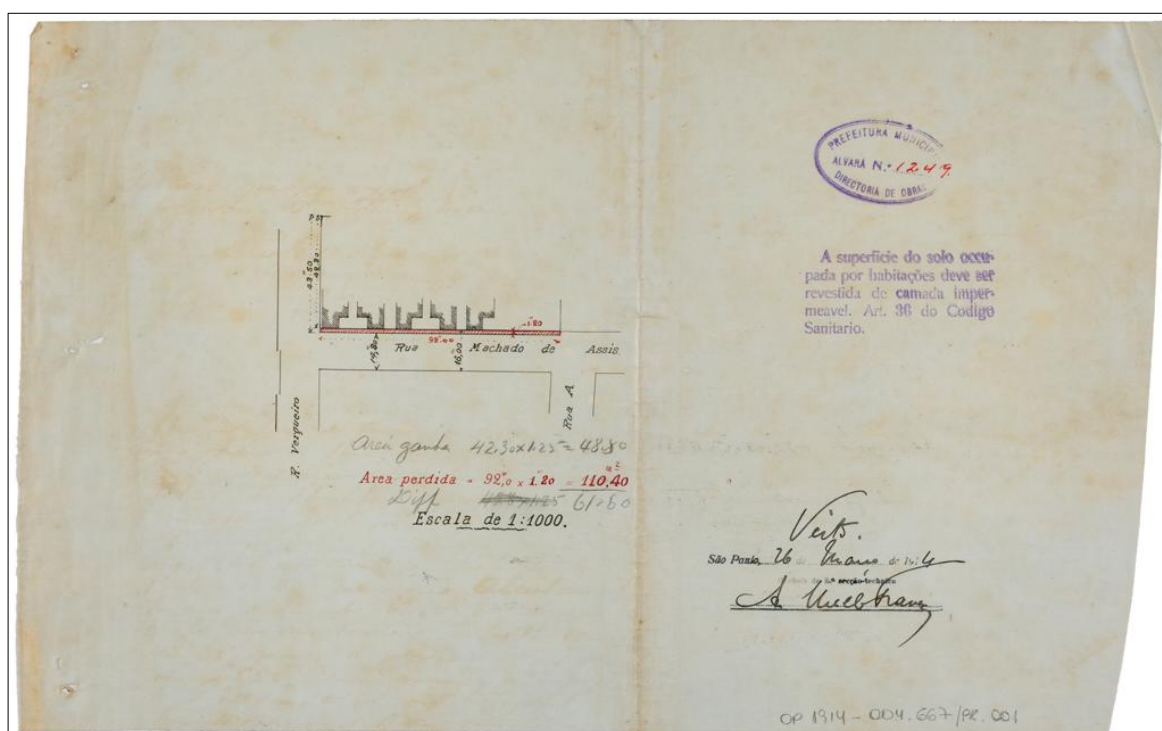 PREFEITURA MUNICIP
ALVARÁ N. 1249
DIRECTORIA DE OBRAS
A superficie do solo occu-
pada por habitações deve ser
revestida de camada imper-
meavel. Art. 36 do Codigo
Sanitario.
1.20
92,00
Rua Machado de Assis
16,00
R. Vergueiro
Rua A
Area ganha 42.30x1.25 = 48.80
Area perdida = 92,0 x 1.20 = 110,40
Diff 61.60
Escala de 1:1000.
Visto.
São Paulo, 26 de de 1914
secção technica
OP 1914 - 004.667/PR.001